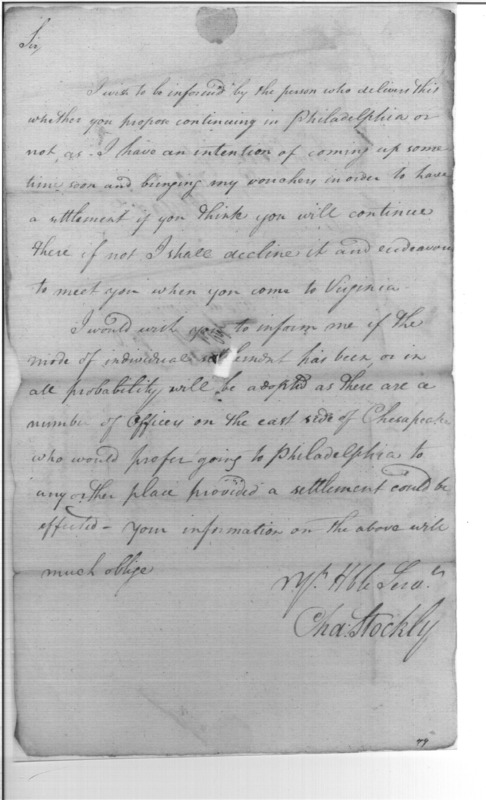 Sir,
I wish to be inform'd by the person who delivers this
whether you propose continuing in Philadelphia or
not, as I have an intention of coming up some
time soon and bringing my vouchers in order to have
a settlement if you think you will continue
there if not I shall decline it and endeavour
to meet you when you come to Virginia
I would wish you to inform me if the
mode of individual settlement has been, or in
all probability will be adopted as there are a
number of Officers on the east side of Chesapeake
who would prefer going to Philadelphia to
any other place provided a settlement could be
effected - Your information on the above will
much oblige
Yr. Hble Serv.t
Cha: Stockly